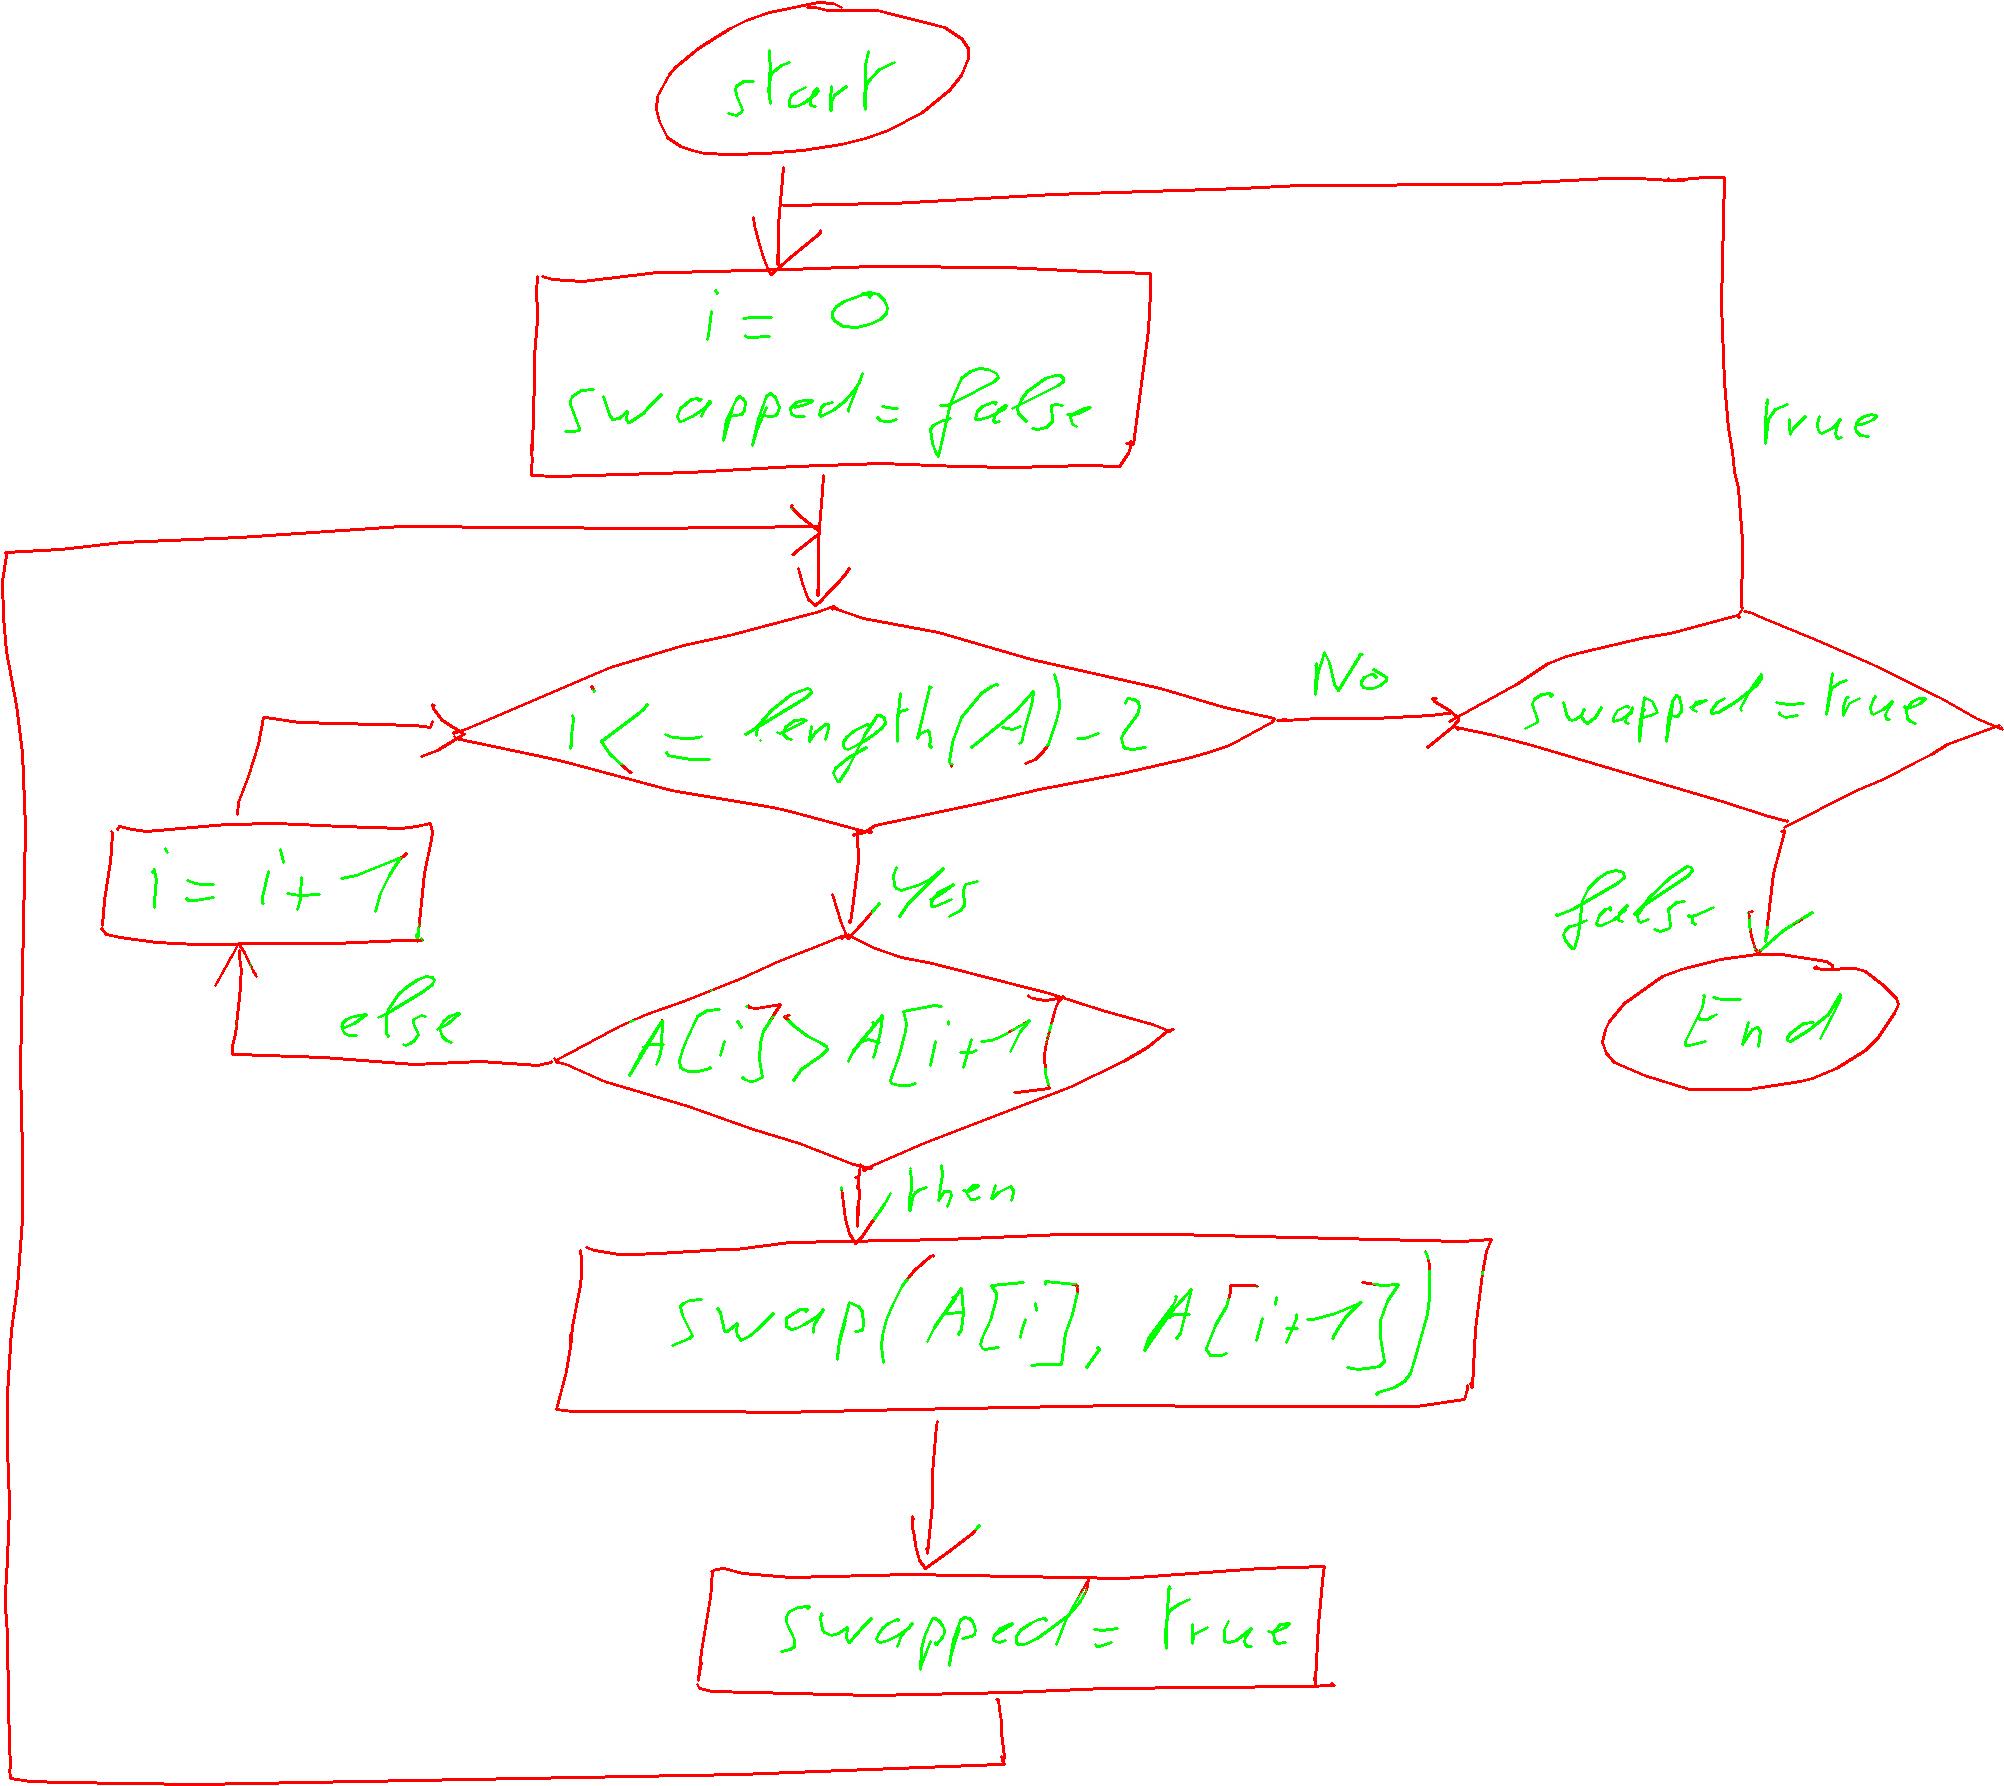 start
i = 0
swapped = false
true
No
i <= length(A) - 2
swapped = true
i = i + 1
Yes
false
else
A[i] > A[i+1]
End
then
swap(A[i], A[i+1])
swapped = true